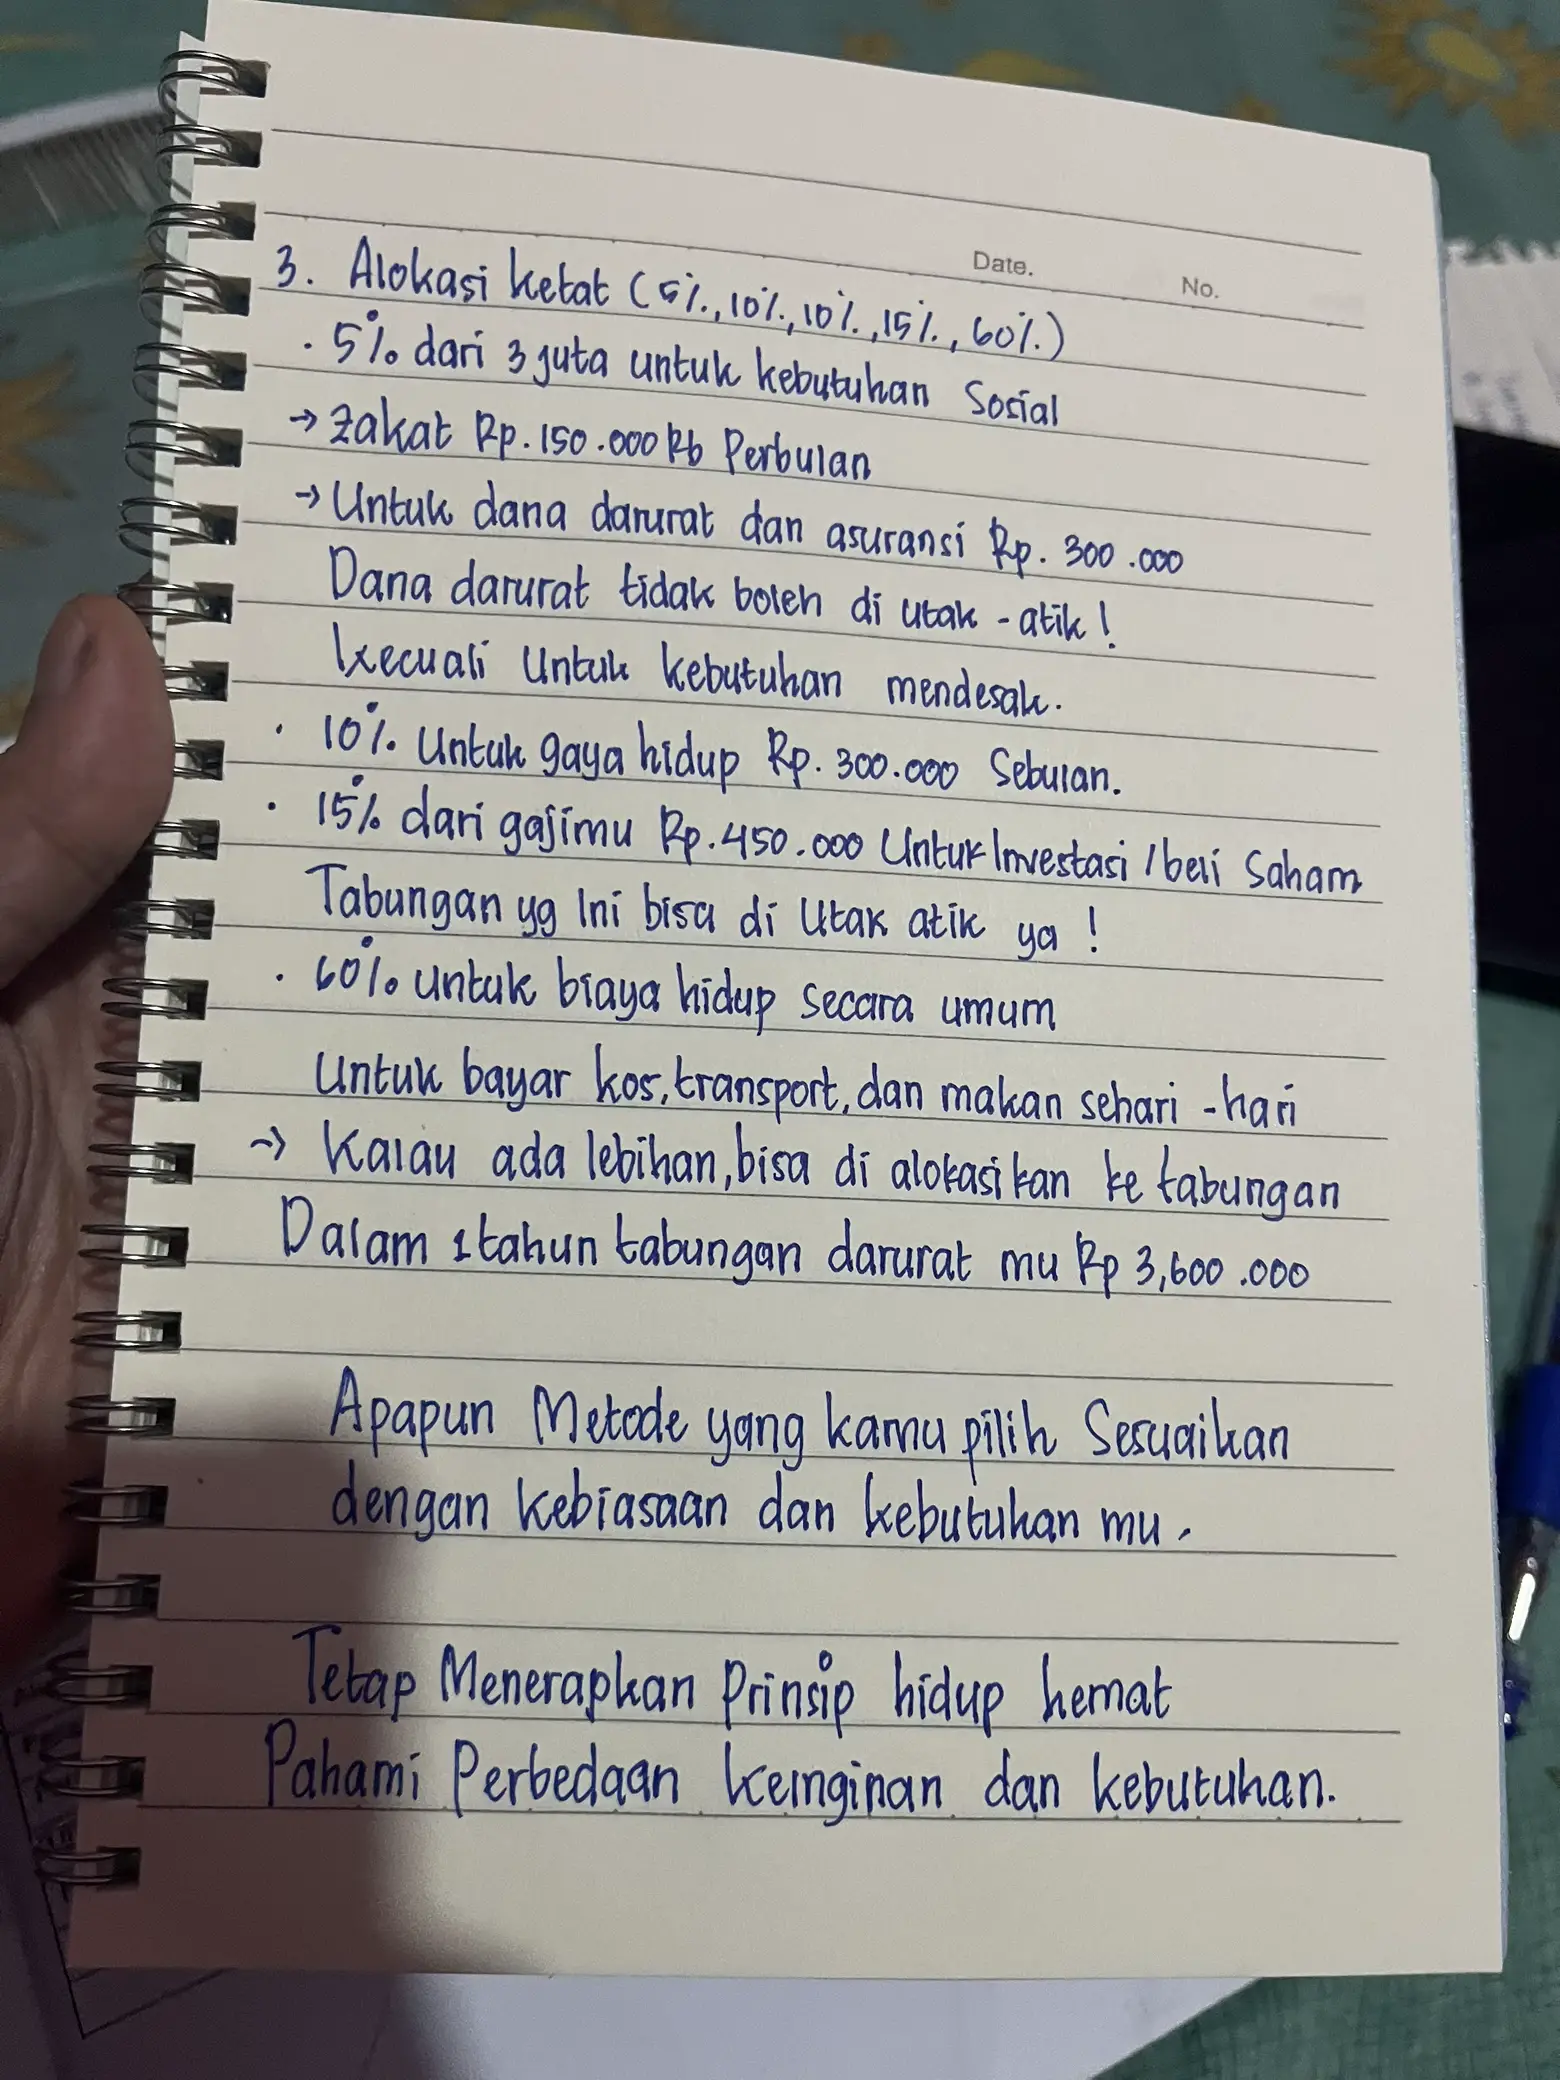 Date. No.
3. Alokasi ketat (5%, 10%, 10%, 15%, 60%)
· 5% dari 3 juta untuk kebutuhan Sosial
→ Zakat Rp. 150.000 Rb Perbulan
→ Untuk dana darurat dan asuransi Rp. 300.000
Dana darurat tidak boleh di utak - atik!
kecuali Untuk kebutuhan mendesak.
· 10% Untuk gaya hidup Rp. 300.000 Sebulan.
· 15% dari gajimu Rp. 450.000 Untuk Investasi / beli Saham
Tabungan yg Ini bisa di Utak atik ya !
· 60% untuk biaya hidup secara umum
Untuk bayar kos, transport, dan makan sehari - hari
→ Kalau ada lebihan, bisa di alokasi kan ke tabungan
Dalam 1 tahun tabungan darurat mu Rp 3,600.000
Apapun Metode yang kamu pilih Sesuaikan
dengan kebiasaan dan kebutuhan mu.
Tetap Menerapkan Prinsip hidup hemat
Pahami Perbedaan keinginan dan kebutuhan.